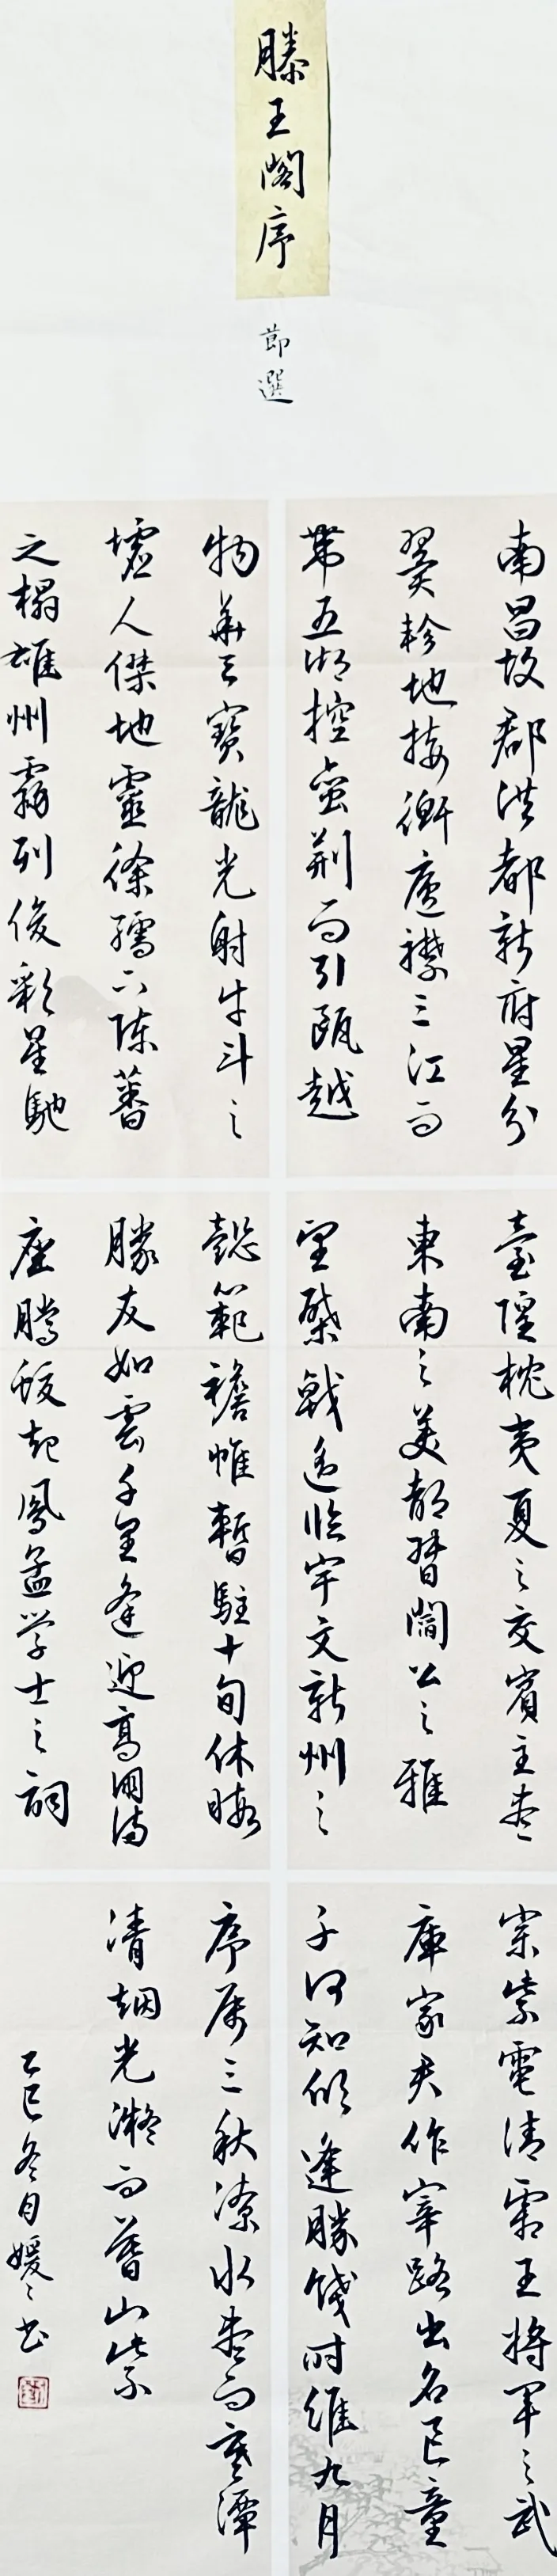 滕王閣序
節選
南昌故郡洪都新府星分
翼軫地接衡廬襟三江而
帶五湖控蠻荊而引甌越
物華天寶龍光射牛斗之
墟人傑地靈徐孺下陳蕃
之榻雄州霧列俊彩星馳
臺隍枕夷夏之交賓主盡
東南之美都督閻公之雅
望棨戟遙臨宇文新州之
懿範襜帷暫駐十旬休暇
勝友如雲千里逢迎高朋滿
座騰蛟起鳳孟学士之詞
宗紫電清霜王將軍之武
庫家君作宰路出名區童
子何知躬逢勝餞时維九月
序屬三秋潦水盡而寒潭
清烟光凝而暮山紫
乙巳冬月媛〻书